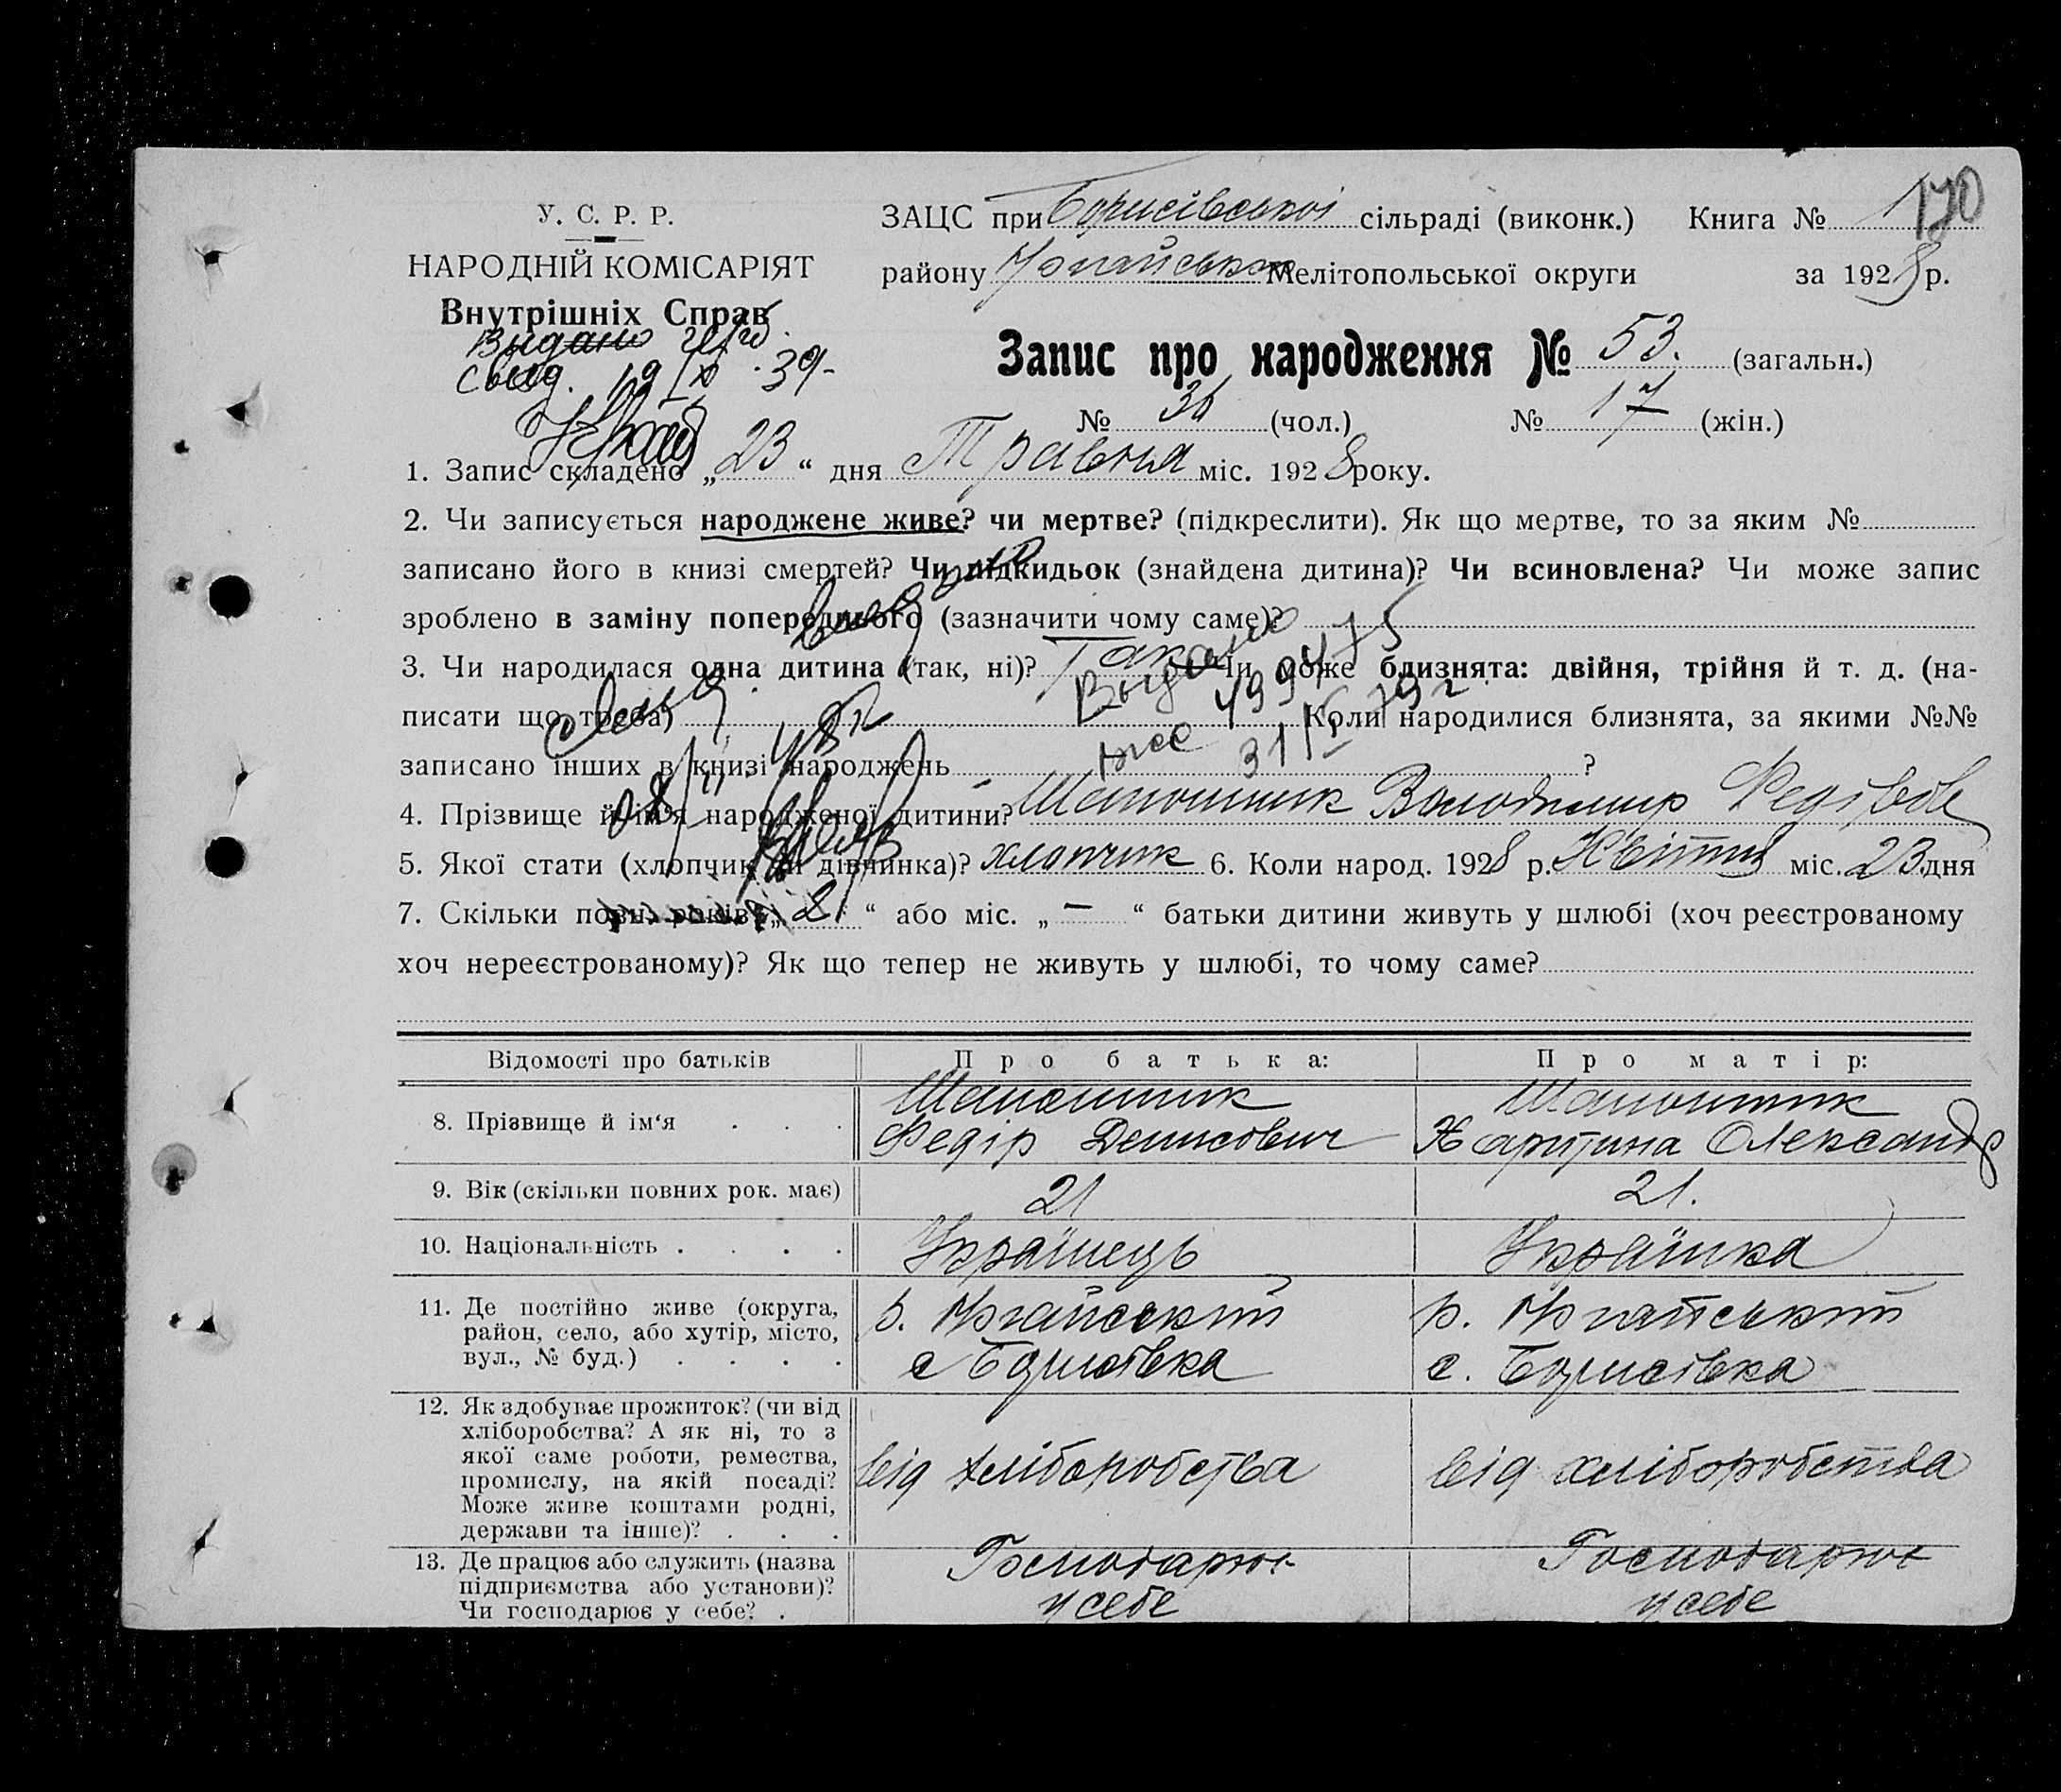 У. С. Р. Р.
НАРОДНІЙ КОМІСАРІЯТ
Внутрішніх Справ
Выдано
свид. 19/IX 39-
ЗАЦС при Борисівській сільраді (виконк.) Книга № 1 170
району Ногайськ Мелітопольської округи за 1928 р.
Запис про народження № 53. (загальн.)
№ 36 (чол.) № 17 (жін.)
1. Запис складено „ 23 “ дня Травня міс. 1928 року.
2. Чи записується народжене живе? чи мертве? (підкреслити). Як що мертве, то за яким №
записано його в книзі смертей? Чи підкидьок (знайдена дитина)? Чи всиновлена? Чи може запис
зроблено в заміну попереднього (зазначити чому саме)?
3. Чи народилася одна дитина (так, ні)? Так Чи може близнята: двійня, трійня й т. д. (на-
писати що треба) Коли народилися близнята, за якими №№
записано інших в книзі народжень ?
Выдано
499475
4. Прізвище й ім'я народженої дитини? Шапошник Володимир Федоров
5. Якої стати (хлопчик чи дівчинка)? хлопчик 6. Коли народ. 1928 р. Квітня міс. 23 дня
7. Скільки повн. років „ 2 “ або міс. „ — “ батьки дитини живуть у шлюбі (хоч реєстрованому
хоч нереєстрованому)? Як що тепер не живуть у шлюбі, то чому саме?
Відомості про батьків Про батька: Про матір:
8. Прізвище й ім‘я . . . Шапошник Федір Денисович Шапошник Харитина Олександр
9. Вік (скільки повних рок. має) 21 21.
10. Національність . . . . Українець Українка
11. Де постійно живе (округа, район, село, або хутір, місто, вул., № буд.) . . . .
р. Ногайський с Борисівка
р. Ногайський с. Борисівка
12. Як здобуває прожиток? (чи від хліборобства? А як ні, то з якої саме роботи, ремества, промислу, на якій посаді? Може живе коштами родні, держави та інше)? . . .
від хліборобства
від хліборобства
13. Де працює або служить (назва підприємства або установи)? Чи господарює у себе? .
Господарює у себе
Господарює у себе